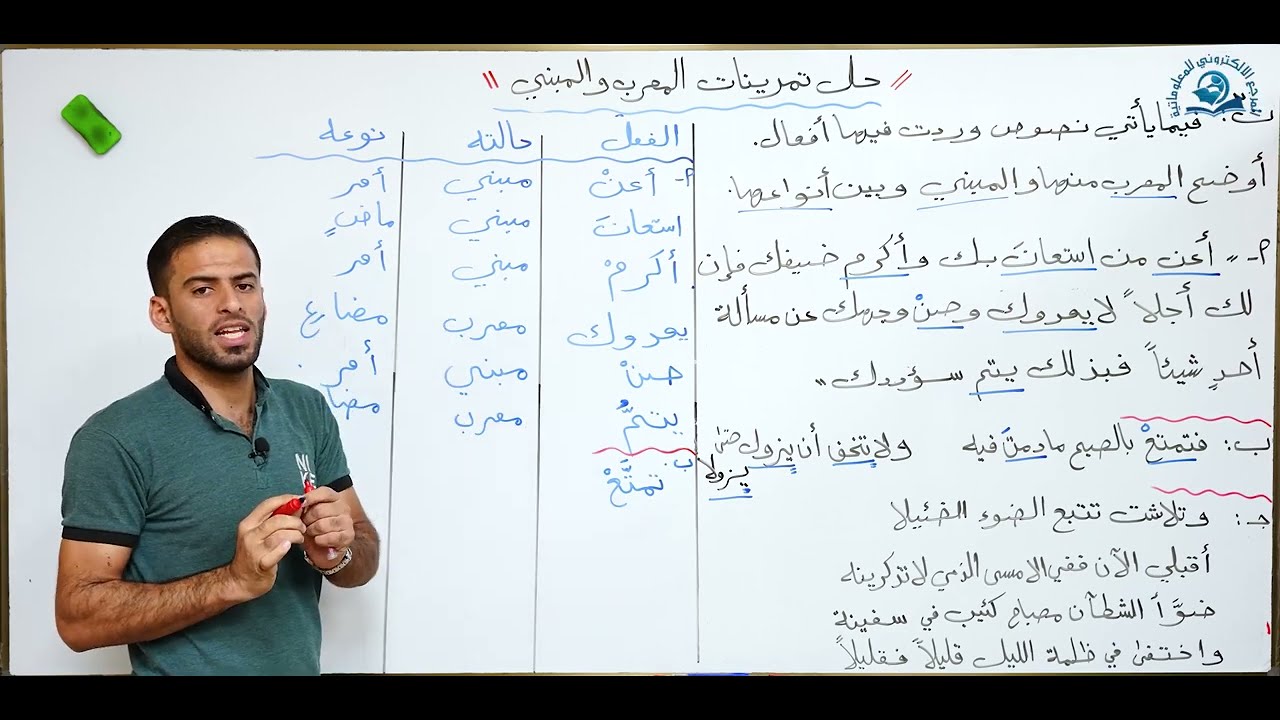 المرجع الالكتروني للمعلوماتية
" حل تمرينات المعرب والمبني "
ت٢: فيما يأتي نصوص وردت فيها أفعال.
أوضح المعرب منها والمبني وبين أنواعها.
٢- " أعن من استعانَ بك وأكرم ضيفك فإن
لك أجلاً لا يعدوك وصنْ وجهك عن مسألة
أحدٍ شيئاً فبذلك يتم سؤددك "
ب: فتمتعْ بالصبح مادمتَ فيه ولا تخف أن يزول حتى
يزولا
جـ: وتلاشت تتبع الضوء الضئيلا
أقبلي الآن ففي الامسى الذي لا تذكرينه
ضوَّأ الشطآن مصباح كئيب في سفينة
واختفى في ظلمة الليل قليلاً فقليلاً
الفعل حالته نوعه
٢- أعنْ مبني أمر
استعانَ مبني ماضٍ
أكرمْ مبني أمر
يعدوك معرب مضارع
صنْ مبني أمر
يتمُّ معرب مضا
ب. تمتَّعْ